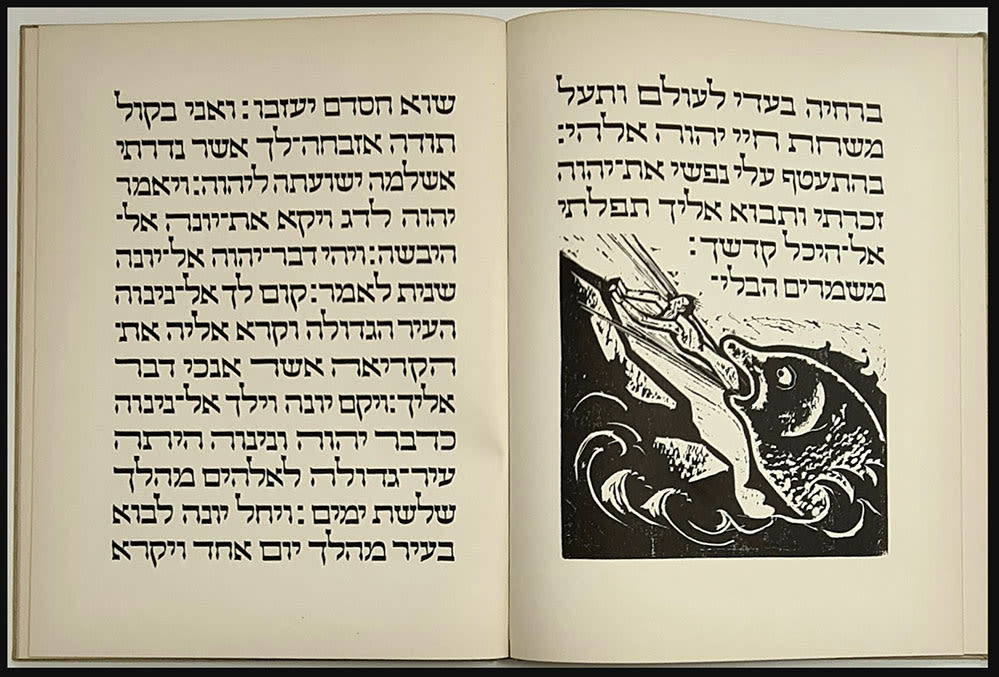 ברחיה בעדי לעולם ותעל
משחת חיי יהוה אלהי:
בהתעטף עלי נפשי את־יהוה
זכרתי ותבוא אליך תפלתי
אל־היכל קדשך:
משמרים הבלי־
שוא חסדם יעזבו: ואני בקול
תודה אזבחה־לך אשר נדרתי
אשלמה ישועתה ליהוה: ויאמר
יהוה לדג ויקא את־יונה אל־
היבשה: ויהי דבר־יהוה אל־יונה
שנית לאמר: קום לך אל־נינוה
העיר הגדולה וקרא אליה את־
הקריאה אשר אנכי דבר
אליך: ויקם יונה וילך אל־נינוה
כדבר יהוה ונינוה היתה
עיר־גדולה לאלהים מהלך
שלשת ימים: ויחל יונה לבוא
בעיר מהלך יום אחד ויקרא